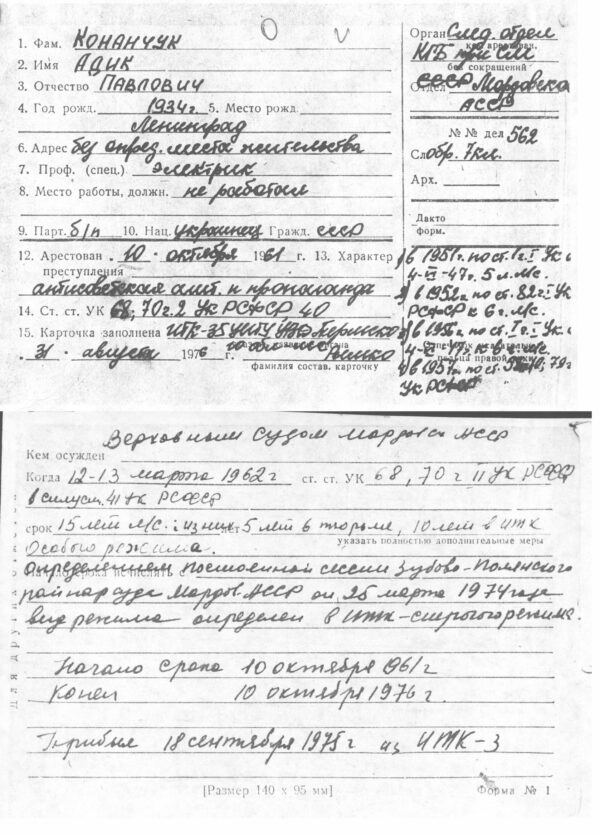 О V
1. Фам. КОНАНЧУК
2. Имя АДИК
3. Отчество ПАВЛОВИЧ
4. Год рожд. 1934 г. 5. Место рожд.
Ленинград
6. Адрес без опред. места жительства
7. Проф. (спец.) электрик
8. Место работы, должн. не работал
9. Парт. б/п 10. Нац. украинец Гражд. СССР
12. Арестован „10" октября 1961 г. 13. Характер
преступления
антисоветская агит. и пропаганда
14. Ст. ст. УК 68, 70 г. 2 УК РСФСР, 40
15. Карточка заполнена ИТК-35
„31" августа 1976 г.
фамилия состав. карточку
Орган След. отдел
КГБ при СМ
без сокращений
СССР
Отдел Мордовской
АССР
№№ дел 562
Сл обр. 7 кл.
Арх.
Дакто
форм.
1) в 1951 г. по ст. 1 г. I Ук
4-VI-47 г. 5 л. л/с.
2) в 1952 г. по ст. 82 г. I УК
РСФСР к 6 г. л/с.
3) в 1956 г. по ст. I г. I Ук
4-VI-47 г. к 6 г. л/с.
4) в 1957 г. по ст.
УК РСФСР
Верховным Судом Мордовск АССР
Кем осужден
Когда 12-13 марта 1962 г ст. ст. УК 68, 70 г II УК РСФСР
в силу ст. 41 УК РСФСР
срок 15 лет л/с. из них 5 лет в тюрьме, 10 лет в ИТК
указать полностью дополнительные меры
Особого режима.
Определением постоянной сессии Зубово-Полянского
райнарсуда Мордов. АССР от 25 марта 1974 года
вид режима определен в ИТК-строгого режима.
Начало срока 10 октября 1961 г
Конец 10 октября 1976 г.
Прибыл 18 сентября 1975 г из ИТК-3
[Размер 140 х 95 мм] Форма № 1